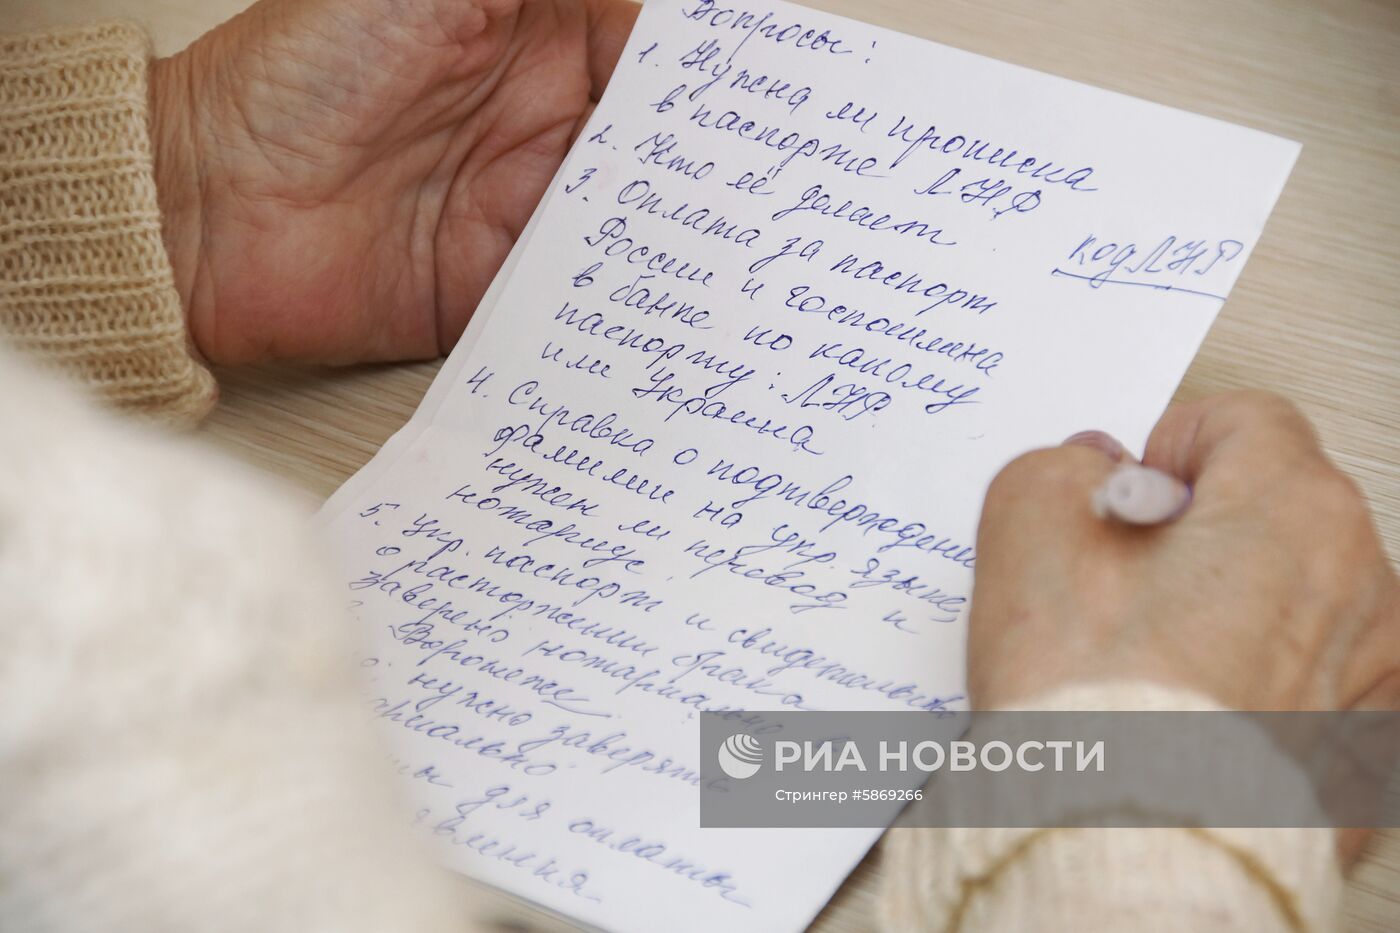 Вопросы:
1. Нужна ли прописка
в паспорте ЛНР
2. Кто её делает
3. Оплата за паспорт
России и госпошлина
в банке по какому
паспорту: ЛНР
или Украина
код ЛНР
4. Справка о подтверждени
фамилии на укр. языке,
нужен ли перевод и
нотариус.
5. Укр. паспорт и свидетельство
о расторжении брака
заверено нотариально в
Воронеже
нужно заверять
для оплаты
РИА НОВОСТИ
Стрингер #5869266